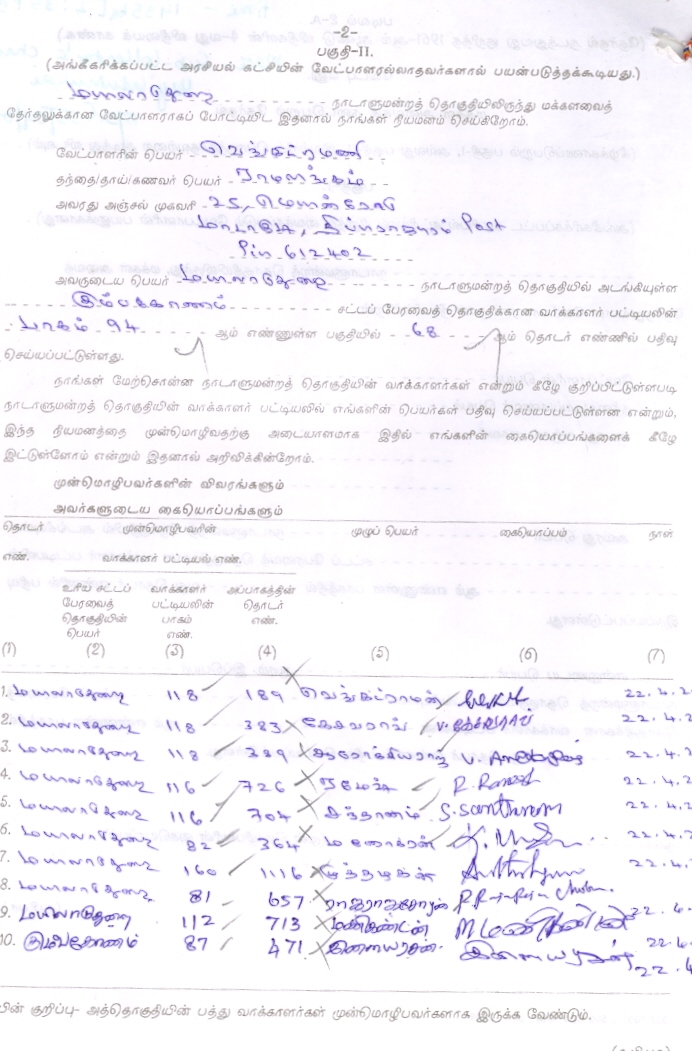 -2-
பகுதி-II.
(அங்கீகரிக்கப்பட்ட அரசியல் கட்சியின் வேட்பாளரல்லாதவர்களால் பயன்படுத்தக்கூடியது.)
மயிலாடுதுறை நாடாளுமன்றத் தொகுதியிலிருந்து மக்களவைத்
தேர்தலுக்கான வேட்பாளராகப் போட்டியிட இதனால் நாங்கள் நியமனம் செய்கிறோம்.
வேட்பாளரின் பெயர் வெங்கட்ரமணி
தந்தை/தாய்/கணவர் பெயர் ராமலிங்கம்
அவரது அஞ்சல் முகவரி 25,
Post
Pin 612402
அவருடைய பெயர் மயிலாடுதுறை நாடாளுமன்றத் தொகுதியில் அடங்கியுள்ள
கும்பகோணம் சட்டப் பேரவைத் தொகுதிக்கான வாக்காளர் பட்டியலின்
பாகம் 94 ஆம் எண்ணுள்ள பகுதியில் 68 ஆம் தொடர் எண்ணில் பதிவு
செய்யப்பட்டுள்ளது.
நாங்கள் மேற்சொன்ன நாடாளுமன்றத் தொகுதியின் வாக்காளர்கள் என்றும் கீழே குறிப்பிட்டுள்ளபடி
நாடாளுமன்றத் தொகுதியின் வாக்காளர் பட்டியலில் எங்களின் பெயர்கள் பதிவு செய்யப்பட்டுள்ளன என்றும்,
இந்த நியமனத்தை முன்மொழிவதற்கு அடையாளமாக இதில் எங்களின் கையொப்பங்களைக் கீழே
இட்டுள்ளோம் என்றும் இதனால் அறிவிக்கின்றோம்.
முன்மொழிபவர்களின் விவரங்களும்
அவர்களுடைய கையொப்பங்களும்
தொடர் முன்மொழிபவரின் முழுப் பெயர் கையொப்பம் நாள்
எண். வாக்காளர் பட்டியல் எண்.
உரிய சட்டப் வாக்காளர் அப்பாகத்தின்
பேரவைத் பட்டியலின் தொடர்
தொகுதியின் பாகம் எண்.
பெயர் எண்.
(1) (2) (3) (4) (5) (6) (7)
1. மயிலாடுதுறை 118 189 வெங்கட்ராமன் 22.4.2
2. மயிலாடுதுறை 118 383 கேசவராங் 22.4.2
3. மயிலாடுதுறை 118 389 ஆரோக்கியராஜ் 22.4.2
4. மயிலாடுதுறை 116 726 ரமேஷ் R. Ramesh 22.4.2
5. மயிலாடுதுறை 116 704 சந்தானம் S. Santhanam 22.4.2
6. மயிலாடுதுறை 82 364 மனோகரன் 22.4.2
7. மயிலாடுதுறை 160 1116 22.4.
8. மயிலாடுதுறை 81 657 ராஜராஜசோழன் 22.4.
9. மயிலாடுதுறை 112 713 மணிகண்டன் M மணிகண்டன் 22.4.
10. கும்பகோணம் 87 471 இளையரசன் இளையரசன் 22.4
பின் குறிப்பு- அத்தொகுதியின் பத்து வாக்காளர்கள் முன்மொழிபவர்களாக இருக்க வேண்டும்.